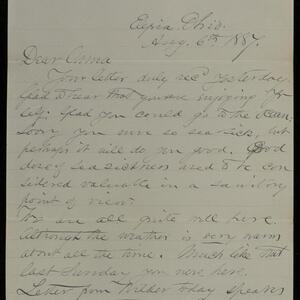 Elyria, Ohio.
Aug. 6th 1887.
Dear Anna
Your letter duly recd yesterday.
Glad to hear that you are enjoying yr
self; glad you could go to the ocean.
Sorry you were so sea-sick, but
perhaps it will do you good. Good
doses of sea sickness used to be con
sidered valuable in a sanitory
point of view.
We are all quite well here.
Although the weather is very warm
about all the time. Much like that
last Sunday you were here.
Letter from Wilder today speaks